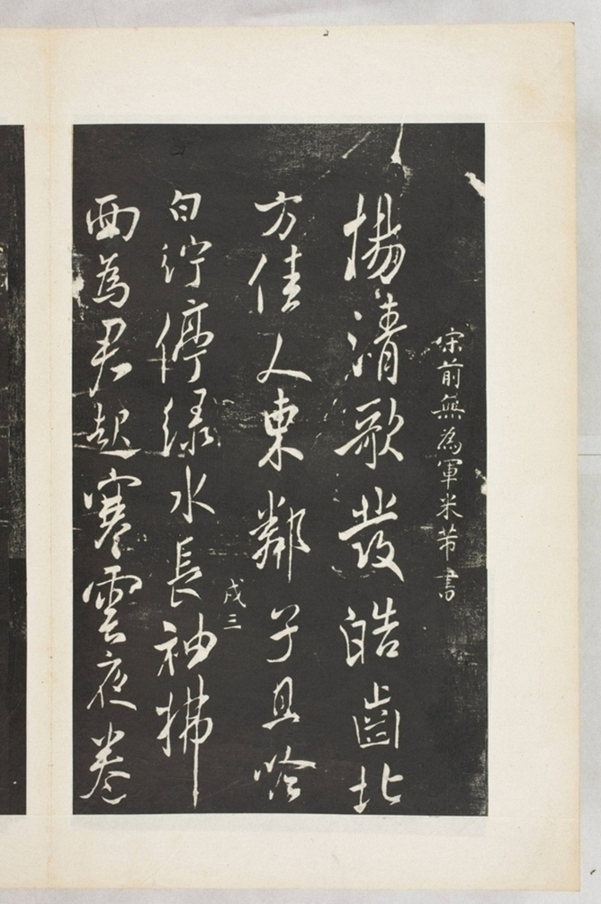 宋前無為軍米芾書
揚清歌發皓齒北
方佳人東鄰子且吟
戌三
白紵停綠水長袖拂
面為君起寒雲夜卷